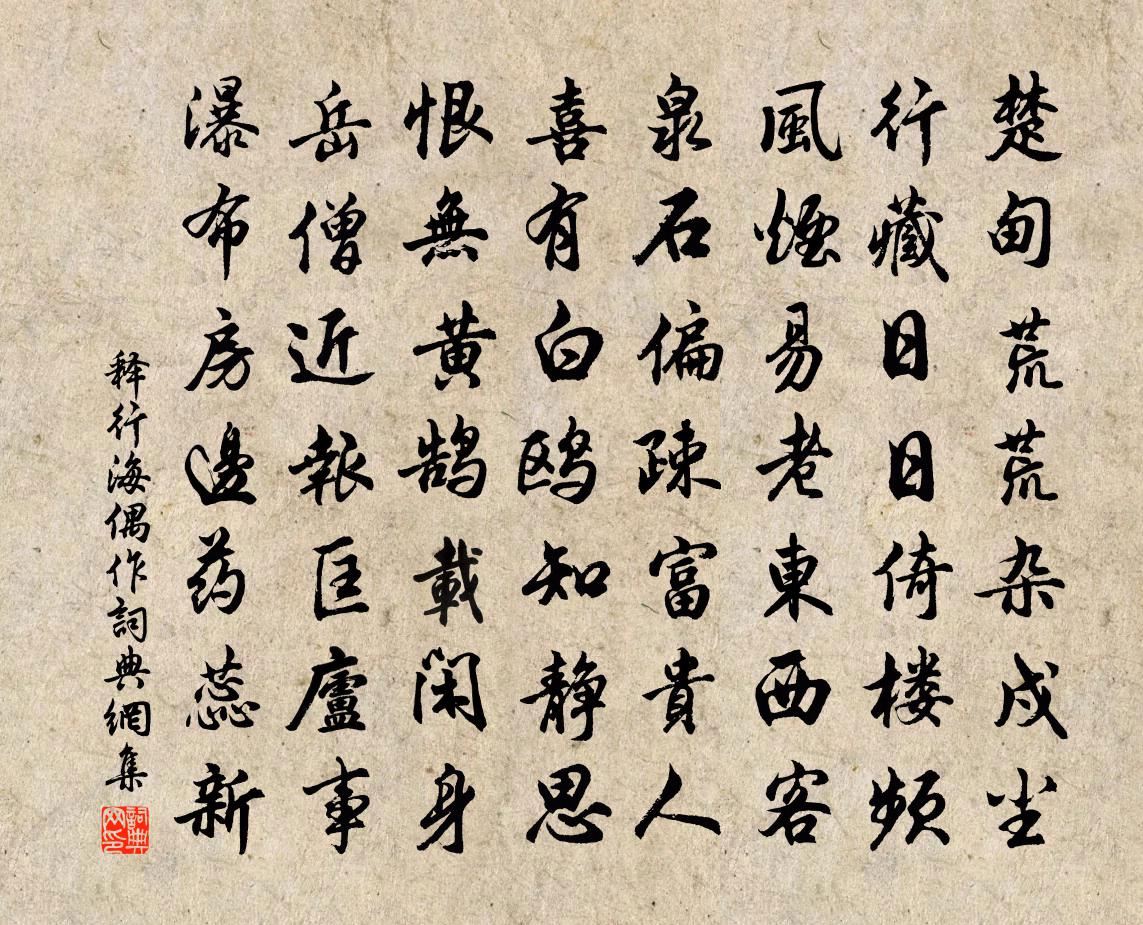 楚甸荒荒杂戍尘
行藏日日倚楼频
風煙易老東西客
泉石偏疎富貴人
喜有白鸥知静思
恨無黄鹄載闲身
岳僧近報匡廬事
瀑布房邊药蕊新
释行海偶作詞典網集
詞典网印